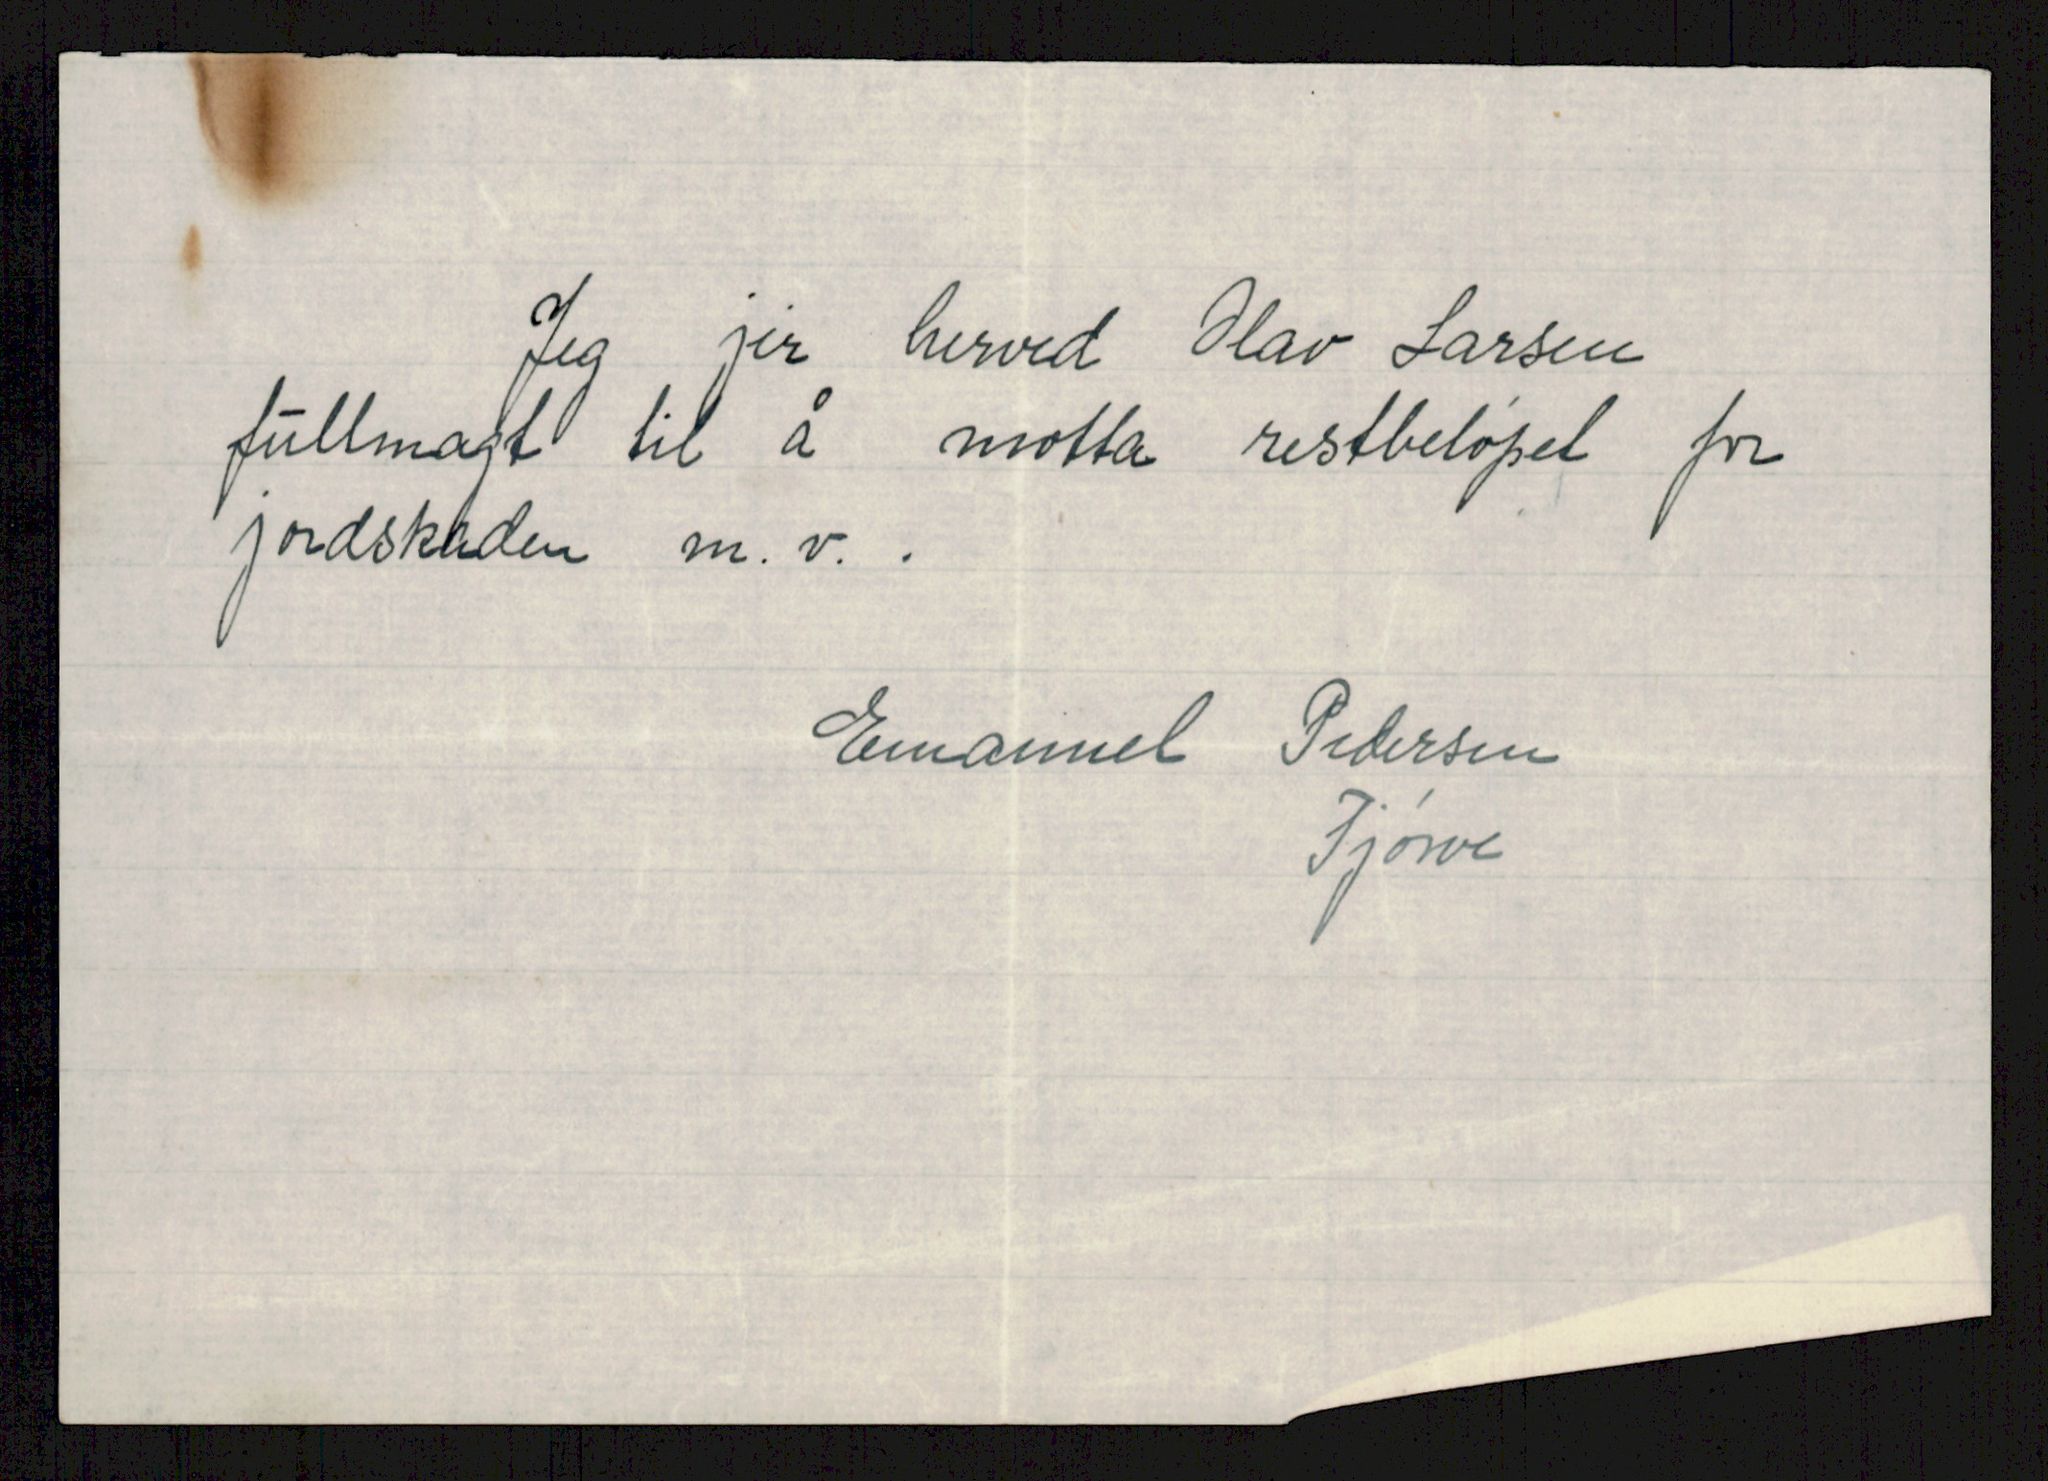 Jeg jir herved Olav Larsen
fullmagt til å motta restbeløpet for
jordskaden m.v. .
Emanuel Pedersen
Fjørve